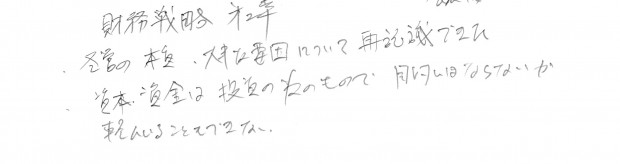 財務戦略 第2章
・経営の本質、大事な要因について再認識できた
・資本、資金は投資の為のもので、目的にはならないが
軽んじることはできない。